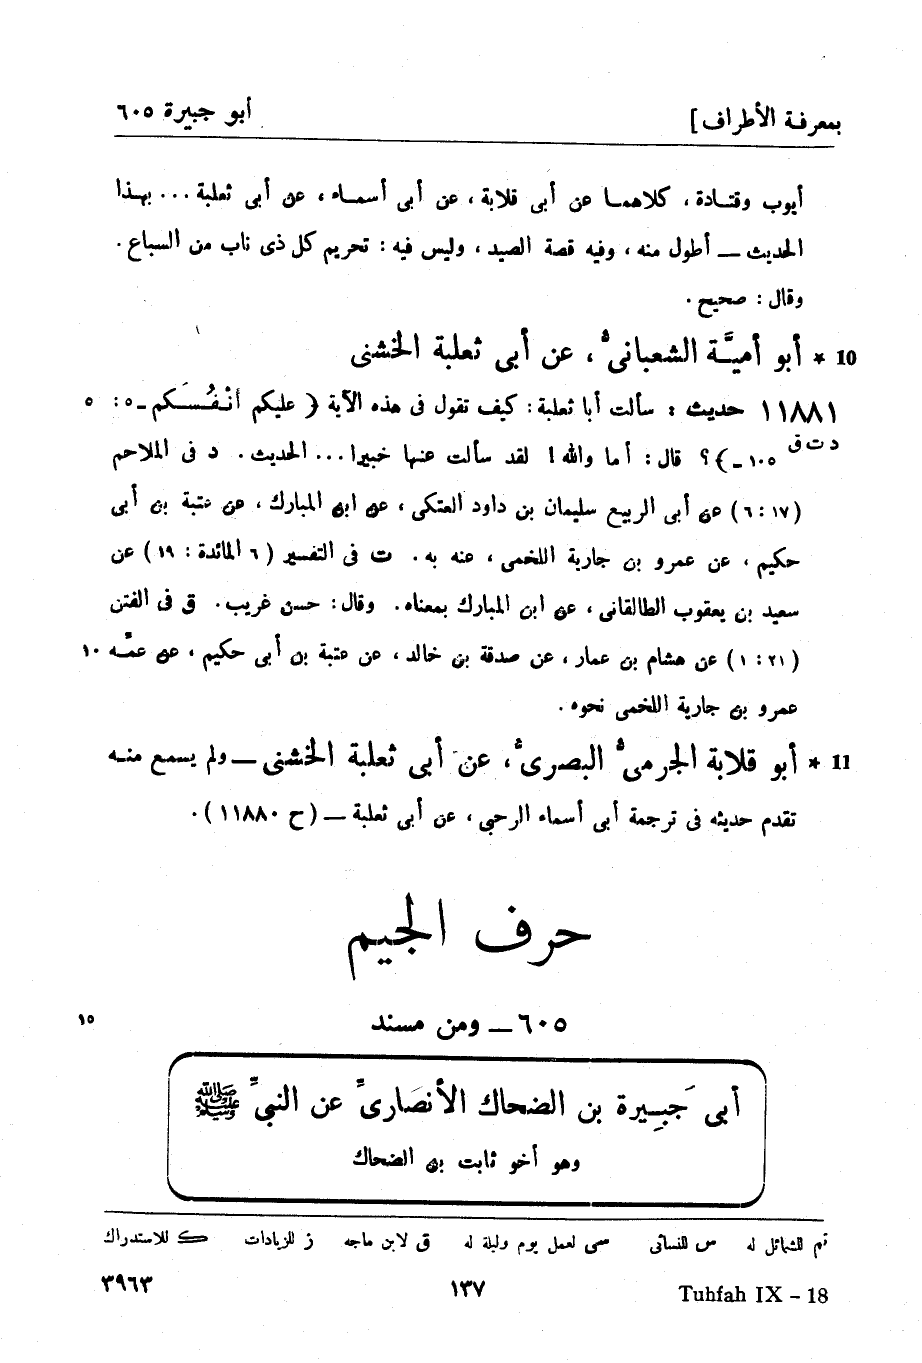 بمعرفة الأطراف ] أبو جبيرة ٦٠٥
أيوب وقتادة ، كلاهما عن أبى قلابة ، عن أبى أسماء ، عن أبى ثعلبة ... بهذا
الحديث ــ أطول منه ، وفيه قصة الصيد ، وليس فيه : تحريم كل ذى ناب من السباع .
وقال : صحيح .
10 * أبو أميَّة الشعبانىُّ ، عن أبى ثعلبة الخشنى
١١٨٨١ حديث : سألت أبا ثعلبة : كيف تقول فى هذه الآية ﴿ عليكم أنْفُسَكم ـ ٥ : ٥
د ت ق ١٠٥ ـ ﴾ ؟ قال : أما والله ! لقد سألت عنها خبيرا ... الحديث . د فى الملاحم
(١٧ : ٦) عن أبى الربيع سليمان بن داود العتكى ، عن ابن المبارك ، عن عتبة بن أبى
حكيم ، عن عمرو بن جارية اللخمى ، عنه به . ت فى التفسير (٦ المائدة : ١٩) عن
سعيد بن يعقوب الطالقانى ، عن ابن المبارك بمعناه . وقال : حسن غريب . ق فى الفتن
(٢١ : ١) عن هشام بن عمار ، عن صدقة بن خالد ، عن عتبة بن أبى حكيم ، عن عمّه ١٠
عمرو بن جارية اللخمى نحوه .
11 * أبو قلابة الجرمىُّ البصرىُّ ، عن أبى ثعلبة الخشنى ــ ولم يسمع منه
تقدم حديثه فى ترجمة أبى أسماء الرحبى ، عن أبى ثعلبة ــ (ح ١١٨٨٠) .
حرف الجيم
٦٠٥ ــ ومن مسند ١٥
أبى جَبِيرة بن الضحاك الأنصارىِّ عن النبىِّ ﷺ
وهو أخو ثابت بن الضحاك
تم للشمائل له س للنسائى سى لعمل يوم وليلة له ق لابن ماجه ز للزيادات ك للاستدراك
Tuhfah IX – 18 ١٣٧ ٣٩٦٣